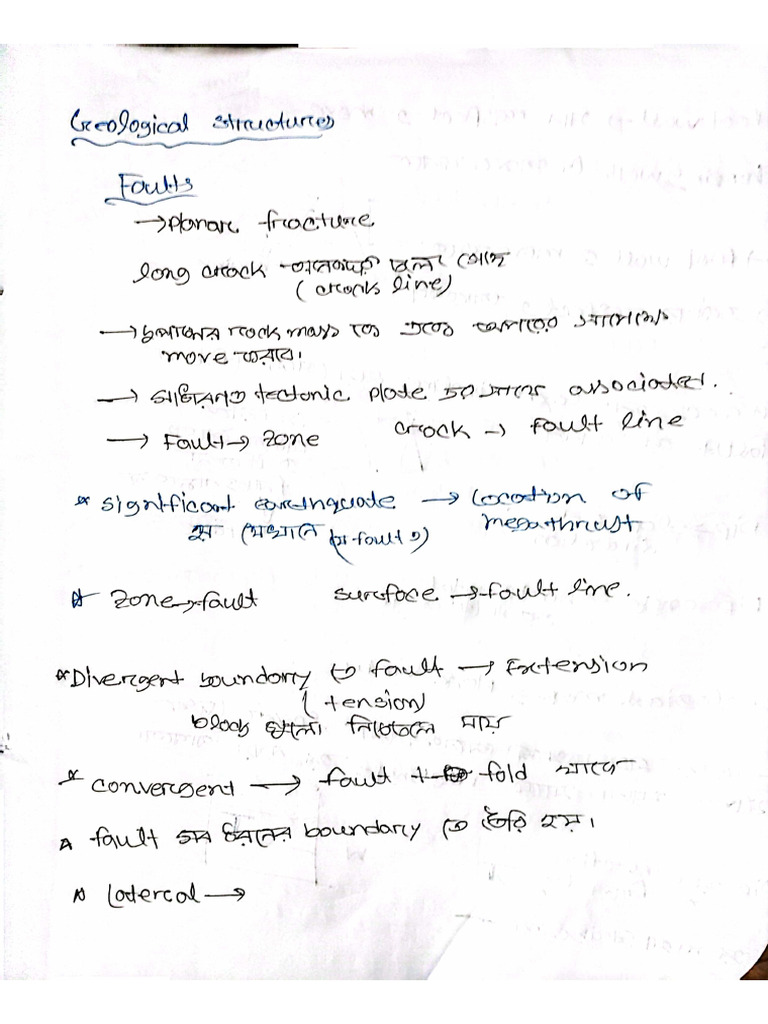 Geological structures
Faults
→ planar fracture
long crack অনেকগুলো হলো গেছে
(crack line)
→ দুপাশের rock mass কে একে অপরের সাপেক্ষে
move করাবে।
→ সাধারণত tectonic plate এর সাথে associated.
→ Fault → zone crack → fault line
* significant earthquake → location of
হয় (যেখানে (যে fault এ) megathrust
* zone → fault surface → fault line.
* Divergent boundary তে fault → Extension
(tension)
block গুলো নিচে চলে যায়
* convergent → fault + fold থাকে
* fault সব ধরনের boundary তে তৈরি হয়।
* Lateral →